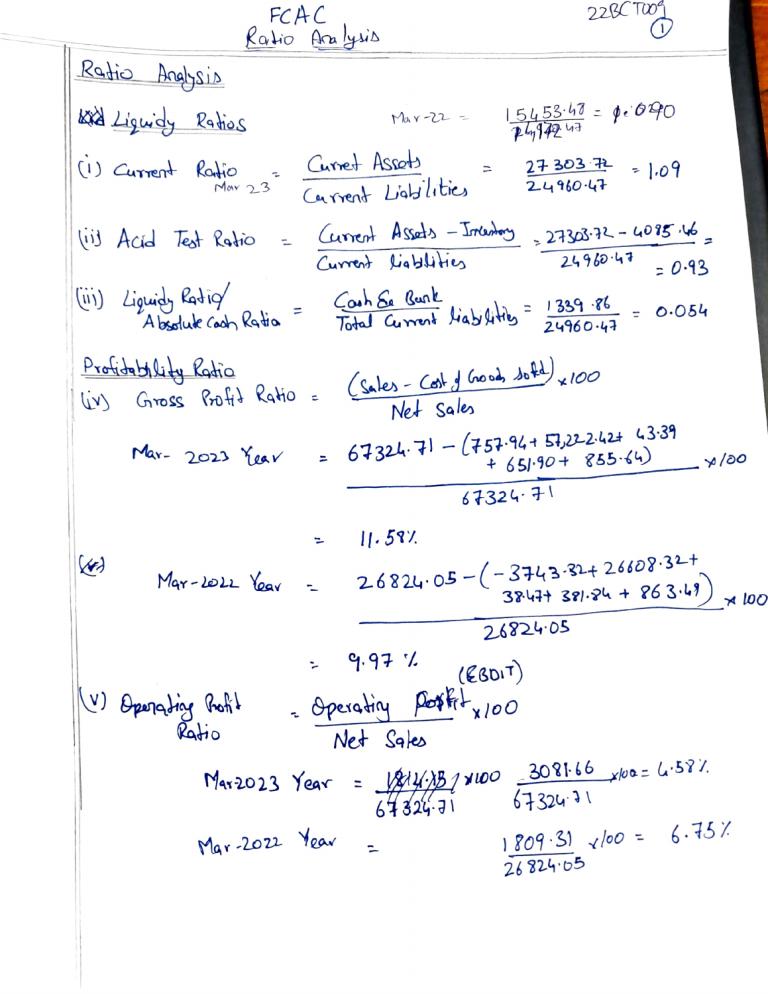 FCAC
22BCT009
1
Ratio Analysis
Ratio Analysis
Liquidy Ratios
Mar-22 = 15453.48 =
(i) Current Ratio = Curret Assets / Current Liabilities = 27303.72 / 24960.47 = 1.09
Mar 23
(ii) Acid Test Ratio = Current Assets - Inventory / Current liabilities = 27303.72 - 4085.46 / 24960.47 =
= 0.93
(iii) Liquidy Ratio/ Absolute Cash Ratio = Cash & Bank / Total Current liabilities = 1339.86 / 24960.47 = 0.054
Profitability Ratio
(iv) Gross Profit Ratio = (Sales - Cost of Goods sold) / Net Sales x100
Mar- 2023 Year = 67324.71 - (757.94 + 57,222.42 + 43.39
+ 651.90 + 855.64) x100
67324.71
= 11.58%
Mar-2022 Year = 26824.05 - (-3743.32 + 26608.32 +
38.47 + 381.84 + 863.49) x 100
26824.05
= 9.97 %
(EBDIT)
(V) Operating Profit Ratio = Operating Profit / Net Sales x100
Mar 2023 Year = x100 / 67324.71 3081.66 / 67324.71 x100 = 4.58%
Mar-2022 Year = 1809.31 / 26824.05 x100 = 6.75%